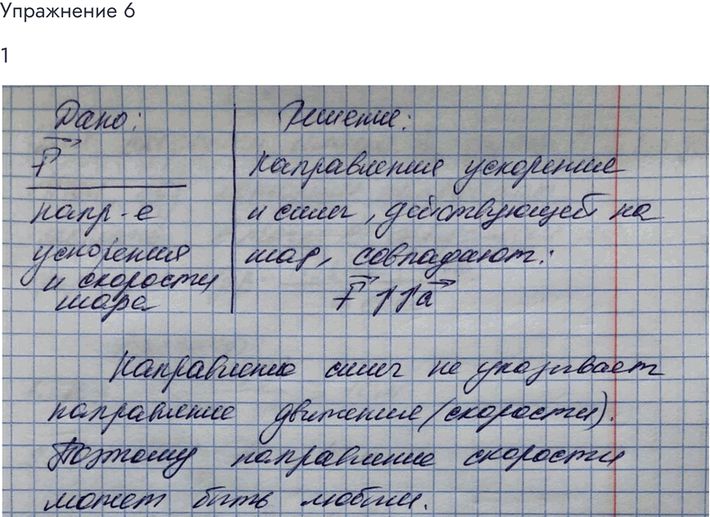 Упражнение 6
1
Дано:
F
напр-е
ускорения
и скорости
шара
Решение:
Направления ускорение
и силы, действующей на
шар, совпадают:
F ↑↑ a
Направление силы не указывает
направление движения (скорости).
Поэтому направление скорости
может быть любым.